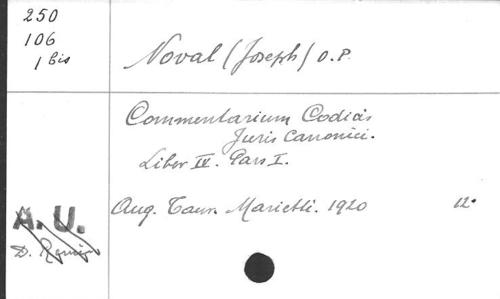 250
106
1 bis
Noval (Joseph) O.P.
Commentarium Codicis
Juris Canonici.
Liber IV. Pars I.
Aug. Taur. Marietti. 1920 12°
A. U.
D.